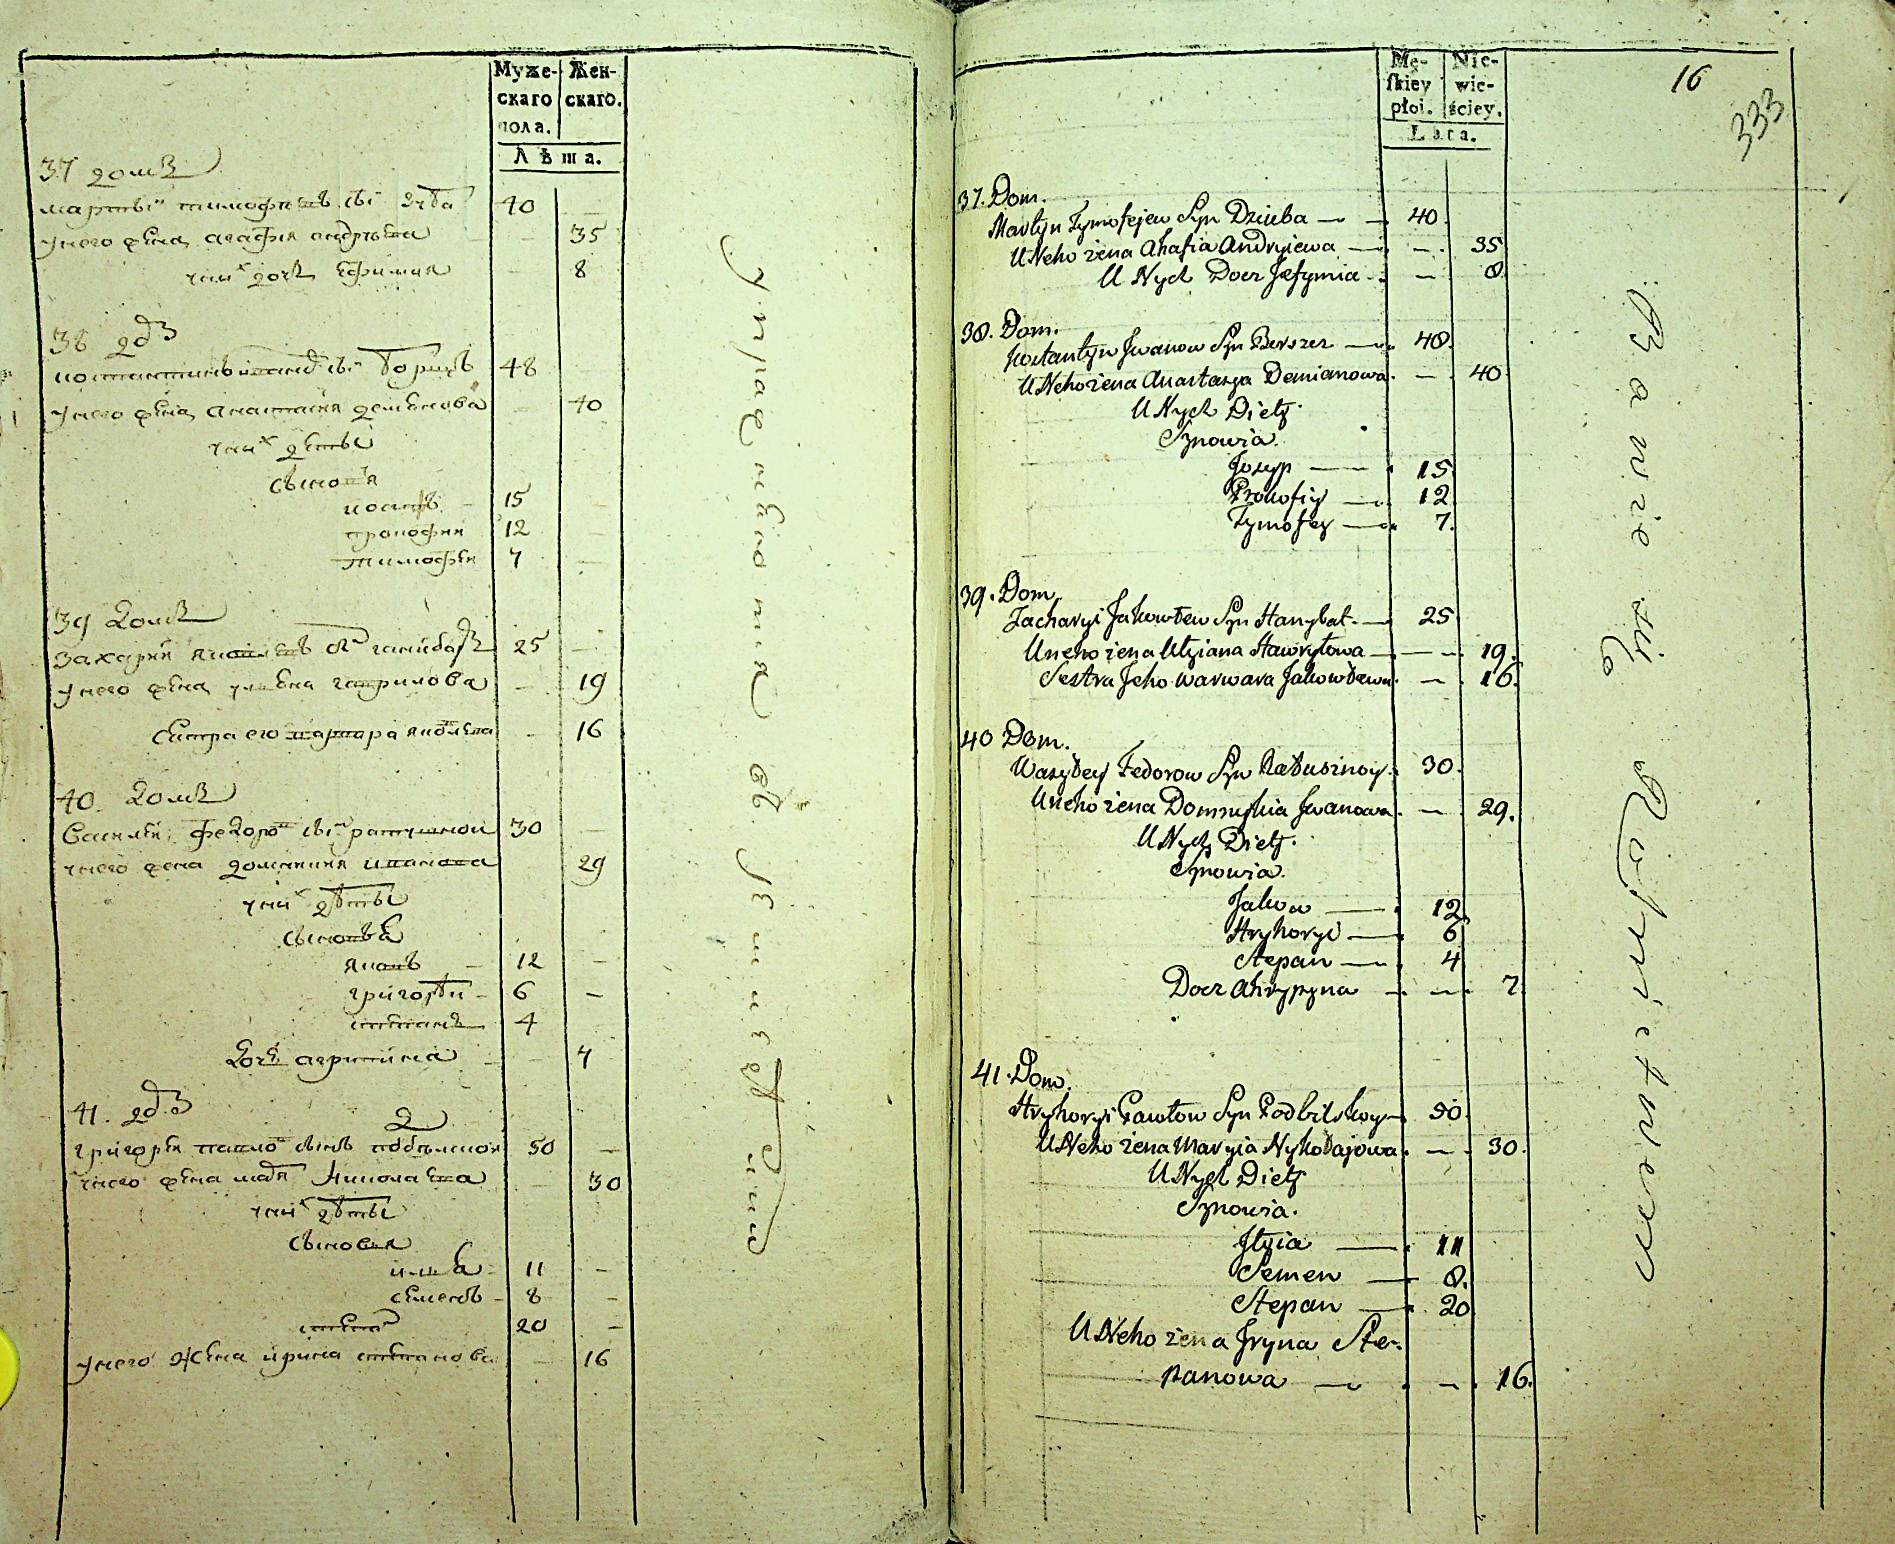 Муже-
скаго
пола.
Жен-
скаго.
Лѣта.
37 домъ
мартынъ тимофеевъ сынъ
40
у него жена агафия андреева
35
у них дочь ефимия
8
38
48
у него жена анастасия
40
у них дети
сыновя
иосипъ
15
прокофии
12
тимофеи
7
39 домъ
захарий яковлевъ сынъ
25
у него жена улияна гаврилова
19
сестра его варвара яковлева
16
40 домъ
василей федоровъ сынъ ратушной
30
у него жена домникия иванова
29
у них дѣты
сыновя
яковъ
12
григорѣй
6
степанъ
4
дочь агрипина
7
41
григорей павловъ сынъ подбельской
50
у него жена мария николаева
30
у них дѣты
сыновя
илья
11
семенъ
8
степанъ
20
у него жена ирина степанова
16
упражняются въ
Mę-
skiey
płoi.
Nie-
wie-
ściey.
Lata.
16
333
37. Dom.
Martyn Tymofejew Syn Dziuba 40.
U Neho żena Ahafia Andryiewa 35
U Nych Docz Jefymia 8.
38. Dom.
Kostantyn Jwanow Syn Borszcz 48.
U Neho żena Anastazya Demianowa 40
U Nych Diety
Synowia.
Josyp 15
Prokofiy 12
Tymofey 7.
39. Dom.
Zacharyi Jakowlew Syn Hanybal. 25
U neho żena Ulyiana Hawryłowa 19.
Sestra Jeho Warwara Jakowlewa 16.
40 Dom.
Wasyley Fedorow Syn Ratusznoy. 30.
U neho żena Domnykia Jwanowa 29.
U Nych Diety.
Synowia.
Jakow 12
Hryhoryi 6
Stepan 4
Docz Ahrypyna 7.
41. Dom.
Hryhoryi Pawłow Syn Podbilskoy 50.
U Neho żena Maryia Nykołajowa 30.
U Nych Diety
Synowia.
Jlyia 11
Semen 8.
Stepan 20
U Neho żena Jryna Ste-
panowa 16.
Bawie się Rolnictwem